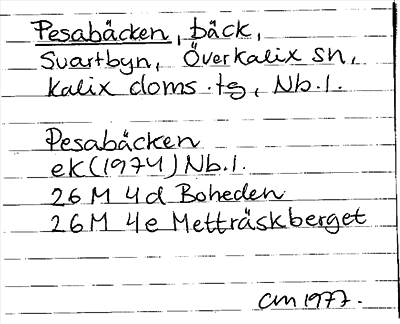 Pesabäcken, bäck,
Svartbyn, Överkalix sn,
Kalix doms.tg, Nb.l.
Pesabäcken
ek (1974) Nb.l.
26 M 4d Boheden
26 M 4e Metträskberget
CM 1977.